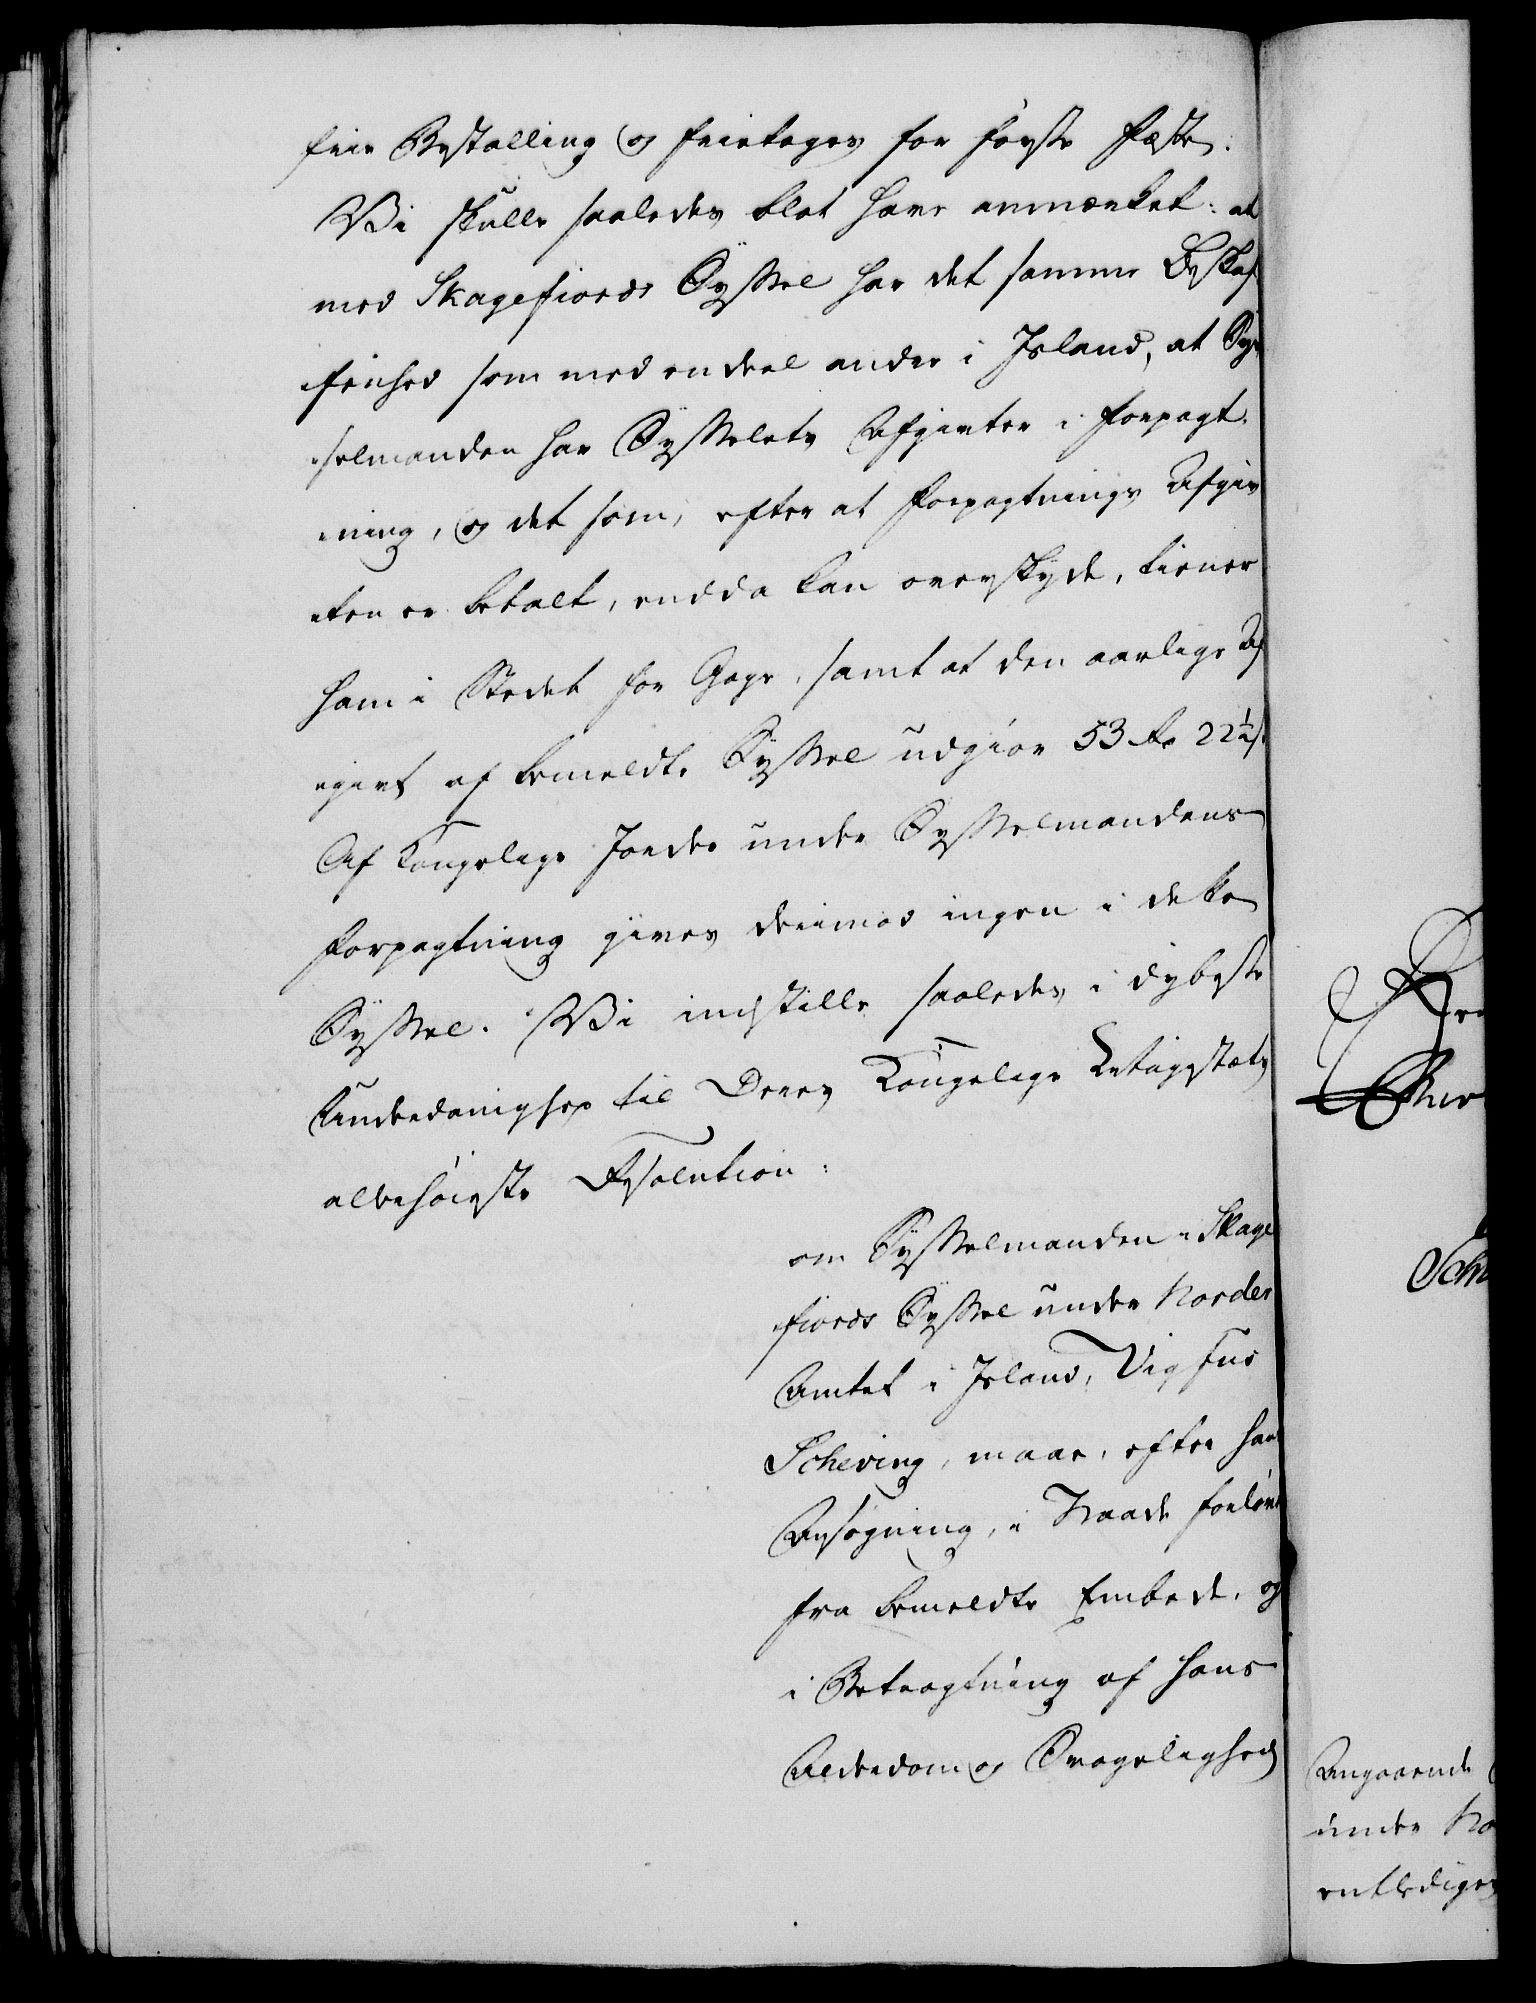 frie Bestalling og frietages for første Fæste.
Vi skulle saaledes blot have anmærket: at
med Skagefiords Syssel har det samme Beskaf
fenhed som med endeel andre i Island, at Sys
selmanden har Sysselets Afgivter i Forpagt
ning, og det som, efter at Forpagtnings Afgiv
ten er betalt, endda kan overskyde, tiener
ham i Stedet for Gage, samt at den aarlige Af
givt af bemeldte Syssel udgiør 53 Rd 22½ s.
Af Kongelige Jorder under Sysselmandens
Forpagtning gives derimod ingen i dette
Syssel. Vi indstille saaledes i dybeste
Underdanighed til Deres Kongelige Majestæts
allerhøieste Resolution:
om Sysselmanden i Skage
fiords Syssel under Norder
Amtet i Island, Vigfus
Scheving, maae, efter hans
Ansøgning, i Naade forløves
fra bemeldte Embede, og
i Betragtning af hans
Alderdom og Svagelighed
Schi
Angaaende
under No
entledige